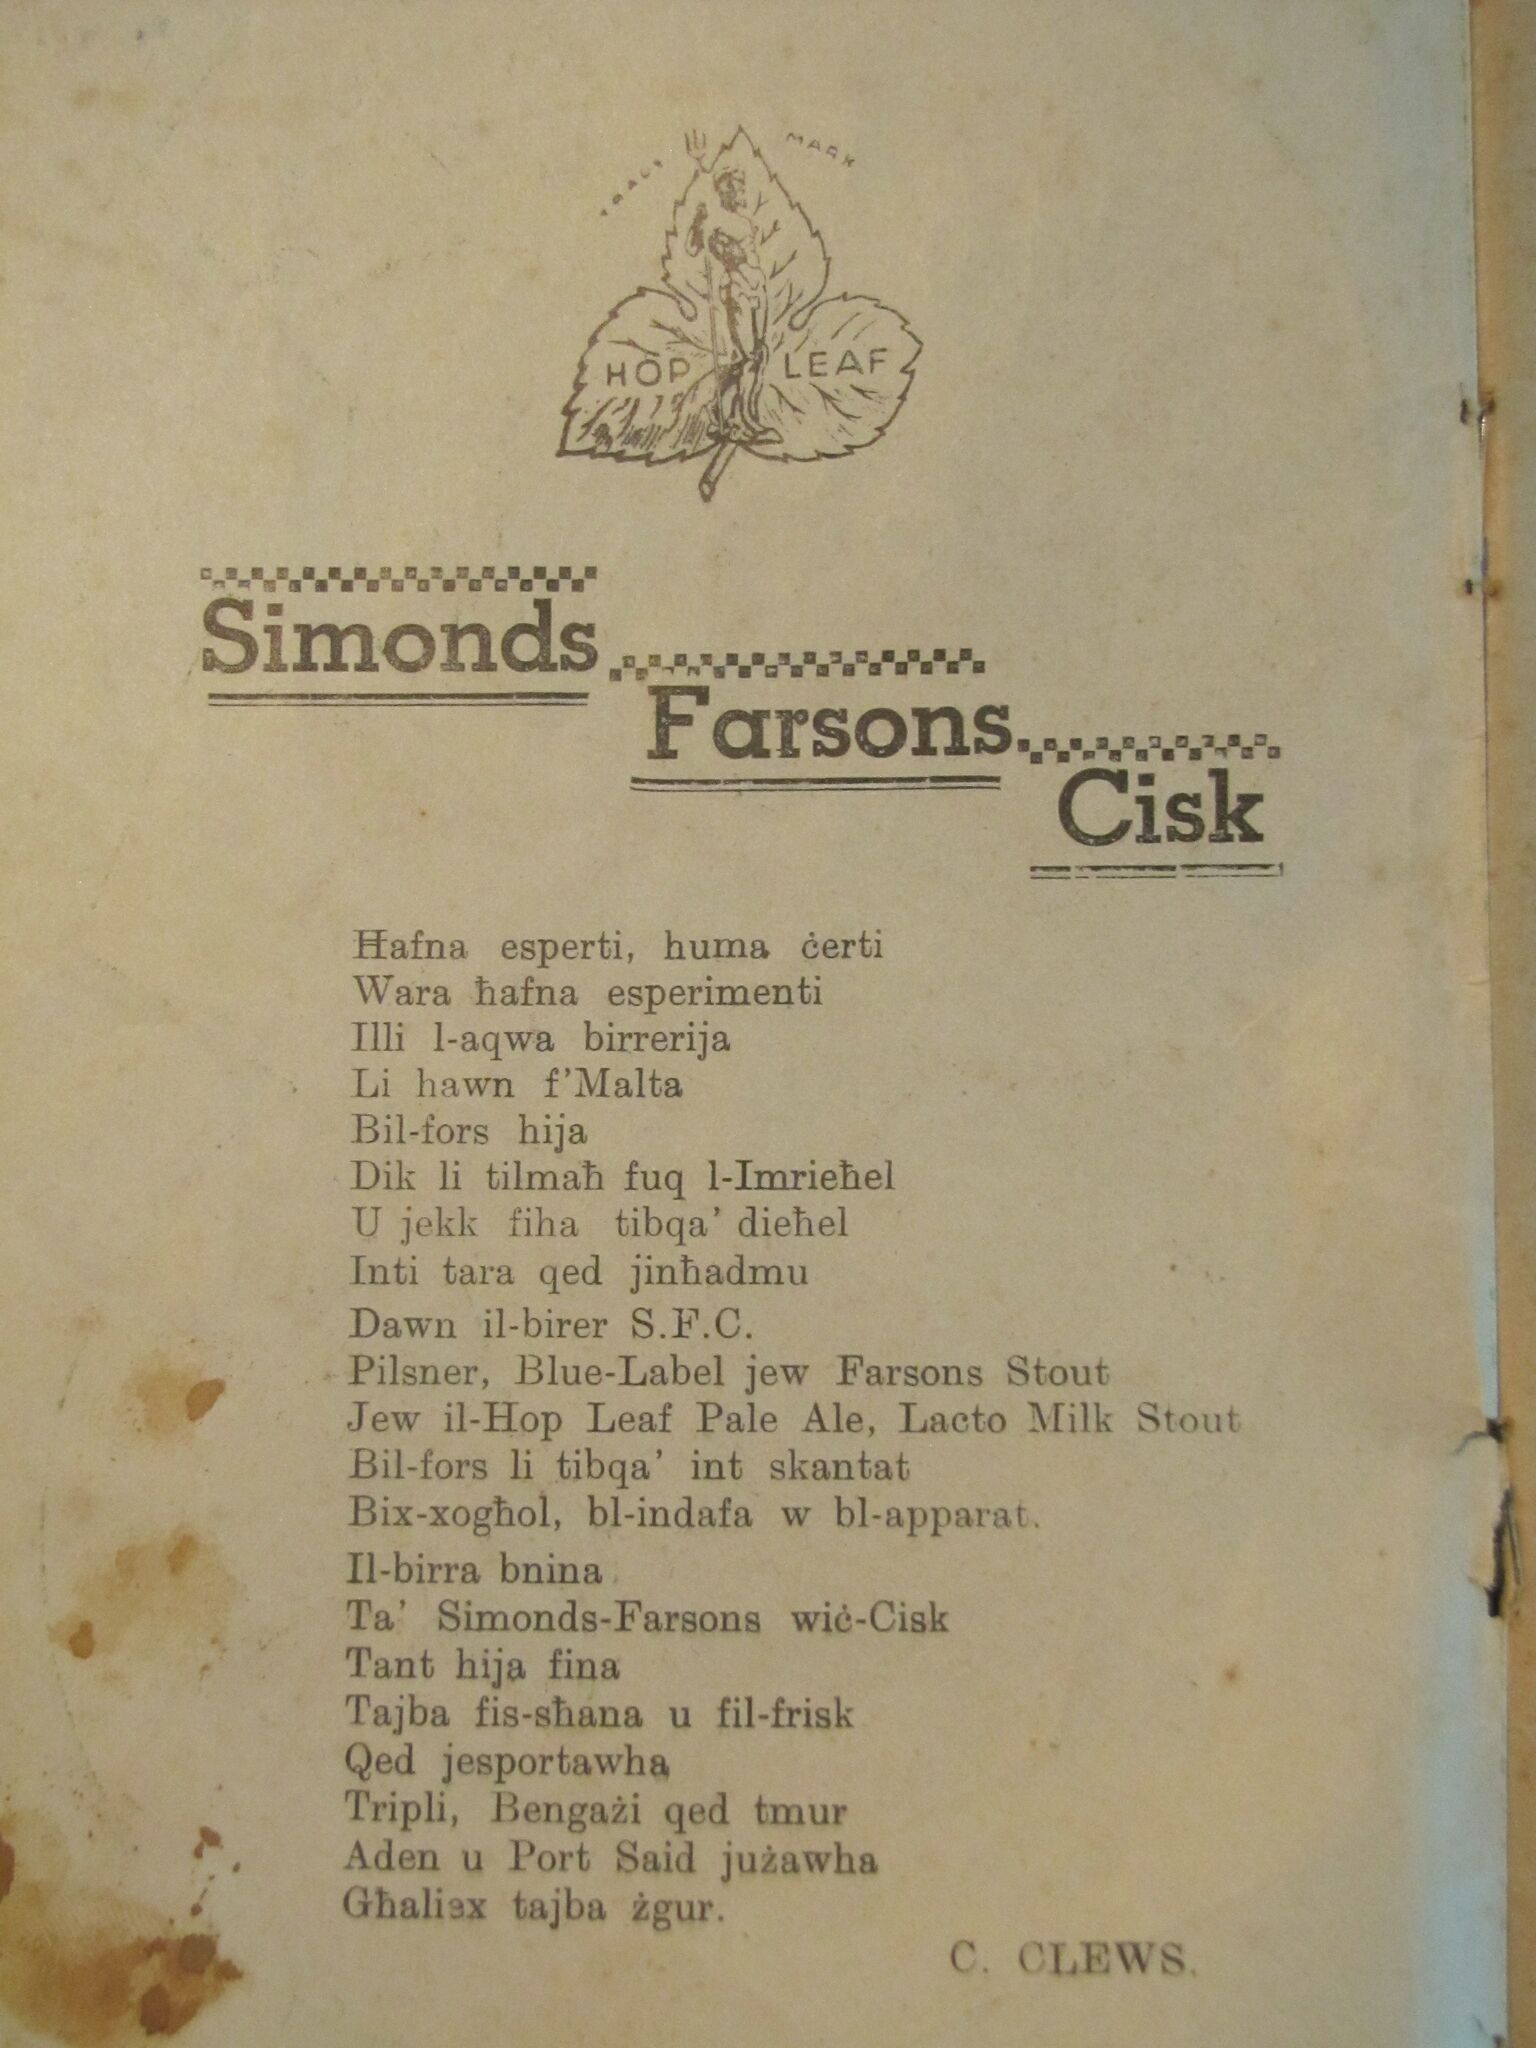 TRADE MARK
HOP LEAF
Simonds
Farsons
Cisk
Ħafna esperti, huma ċerti
Wara ħafna esperimenti
Illi l-aqwa birrerija
Li hawn f'Malta
Bil-fors hija
Dik li tilmaħ fuq l-Imrieħel
U jekk fiha tibqa' dieħel
Inti tara qed jinħadmu
Dawn il-birer S.F.C.
Pilsner, Blue-Label jew Farsons Stout
Jew il-Hop Leaf Pale Ale, Lacto Milk Stout
Bil-fors li tibqa' int skantat
Bix-xogħol, bl-indafa w bl-apparat.
Il-birra bnina
Ta' Simonds-Farsons wiċ-Cisk
Tant hija fina
Tajba fis-sħana u fil-frisk
Qed jesportawha
Tripli, Bengażi qed tmur
Aden u Port Said jużawha
Għaliex tajba żgur.
C. CLEWS.